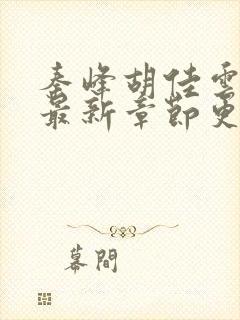 秦峰胡佳雲
最新章節更
幕間